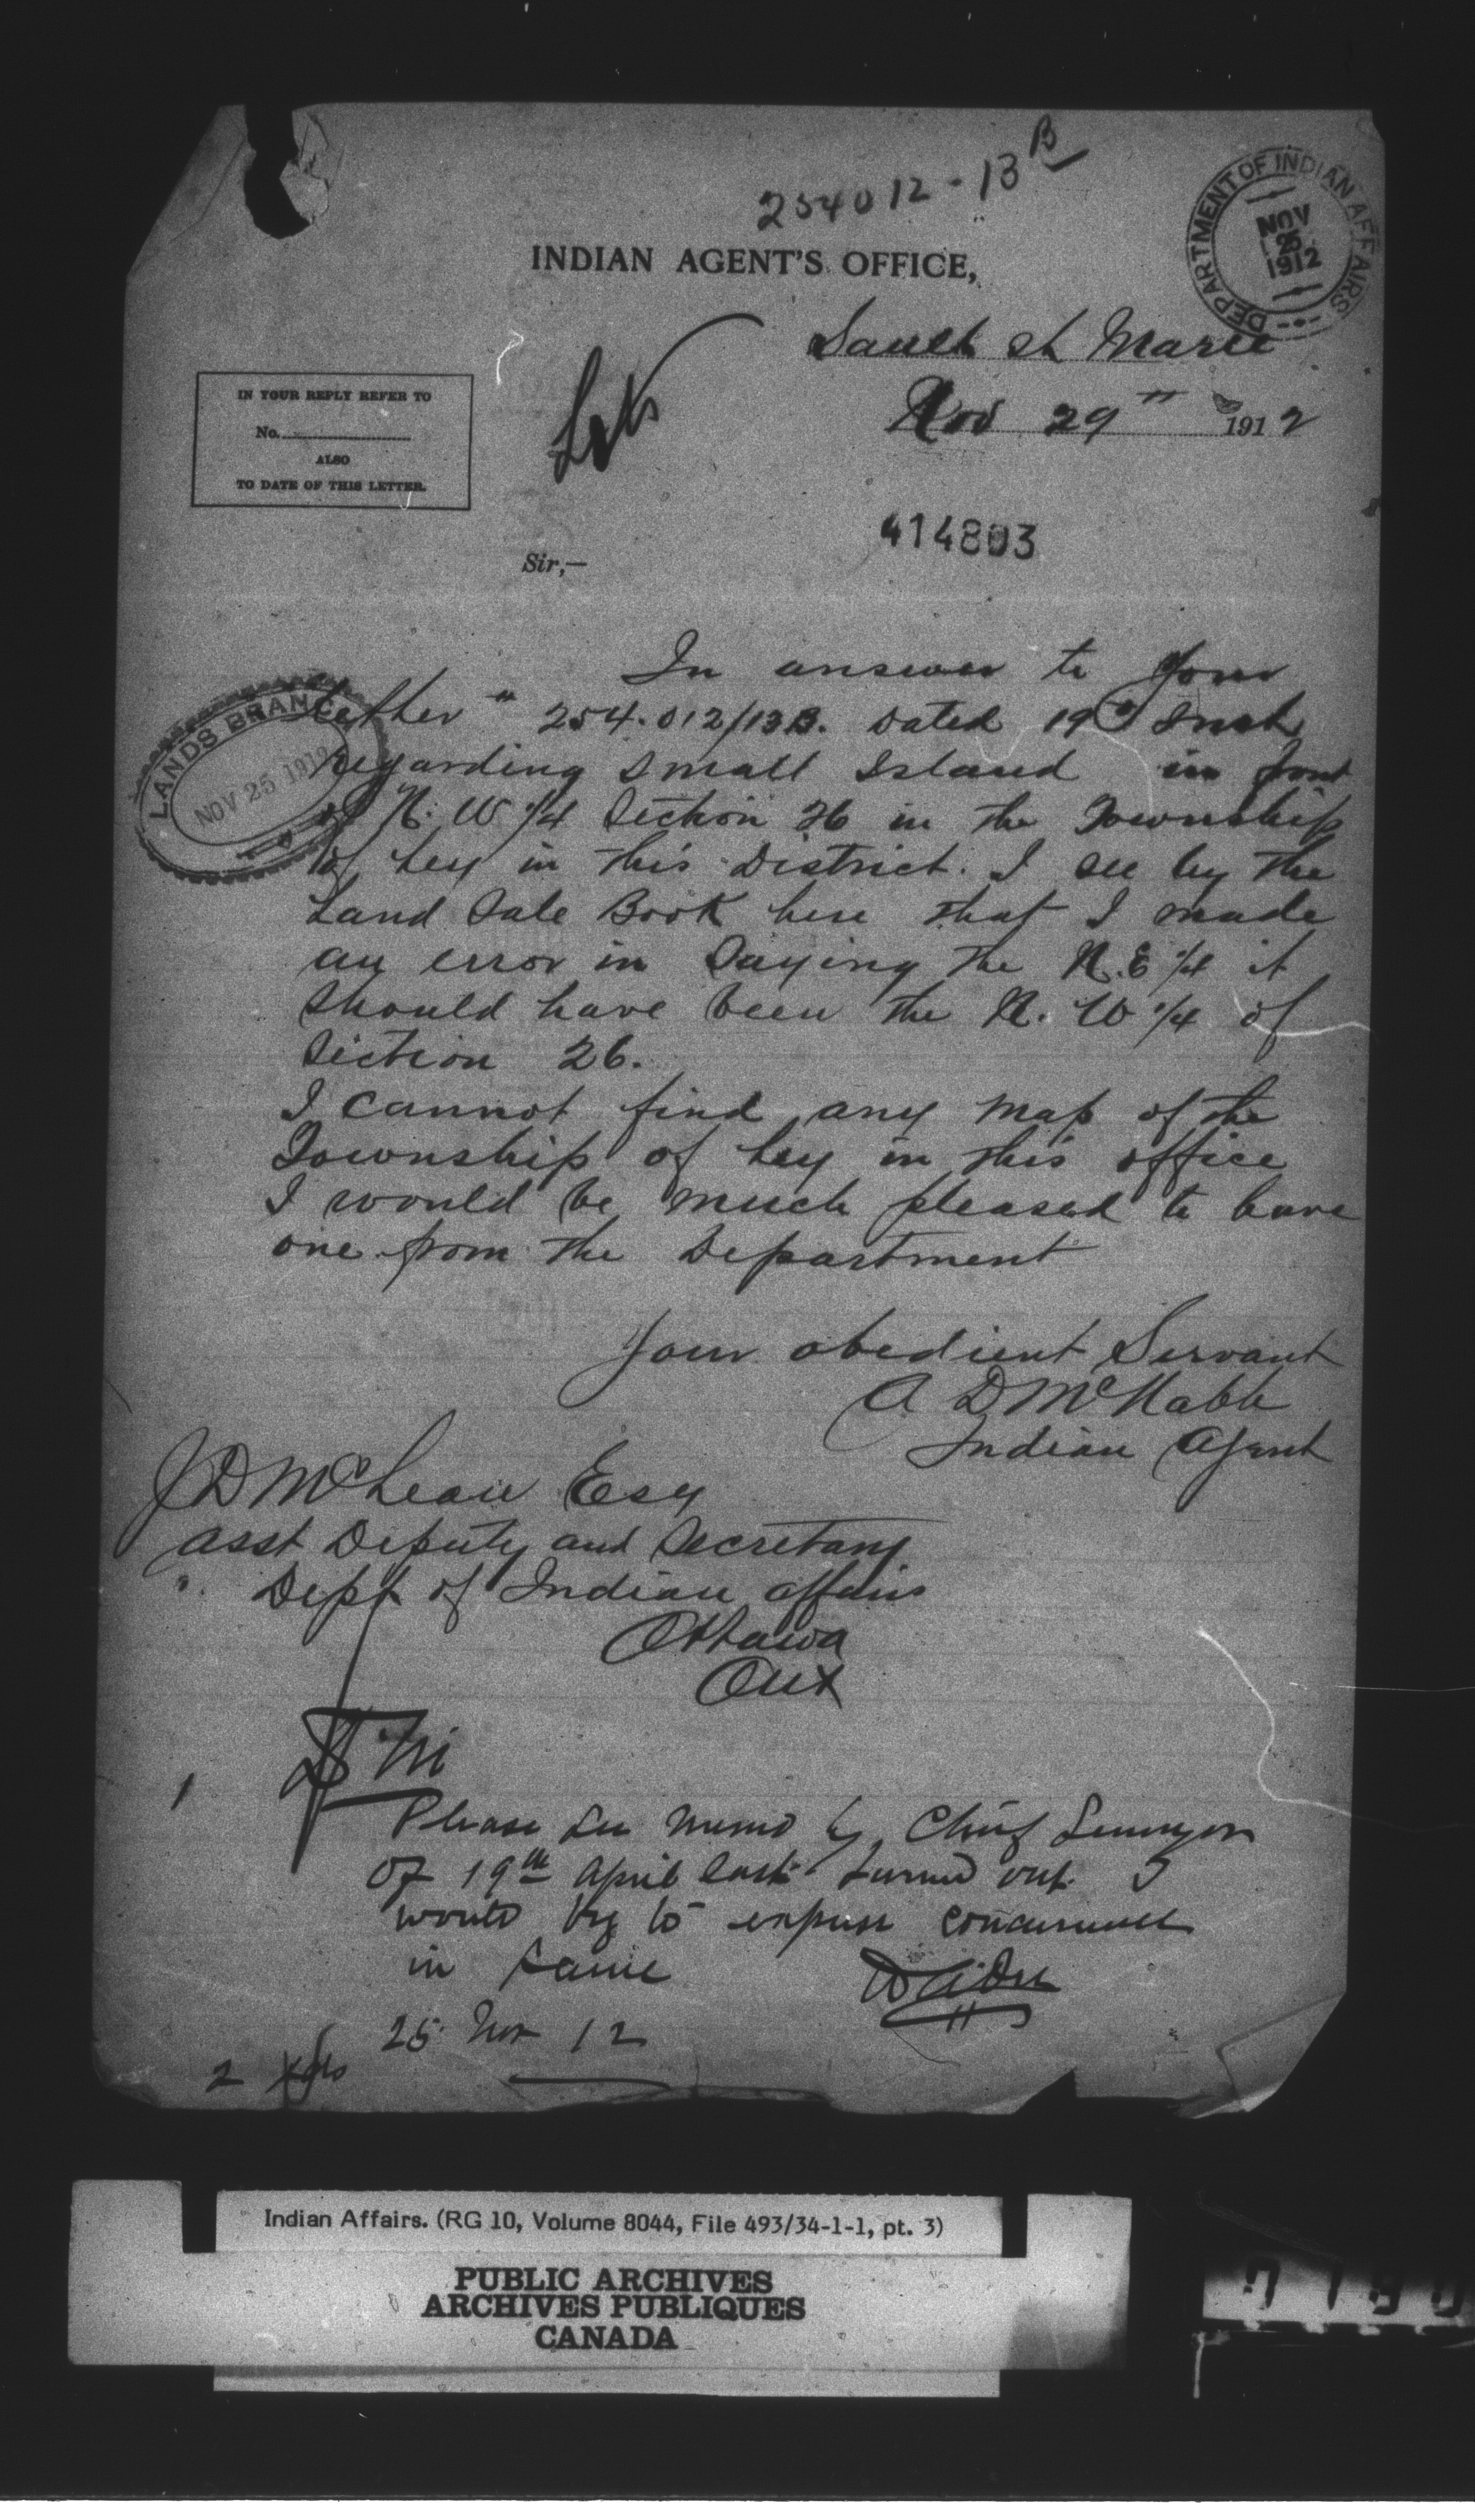 254012-13 B
DEPARTMENT OF INDIAN AFFAIRS
NOV
25
1912
INDIAN AGENT'S OFFICE,
Sault St Marie
Nov 29th 1912
IN YOUR REPLY REFER TO
No.
ALSO
TO DATE OF THIS LETTER.
414803
Sir,—
In answer to your
letter " 254.012/13B. Dated 19th Inst
LANDS BRANCH
NOV 25 1912
regarding small Island in front
of N. W 1/4 Section 26 in the Township
of Ley in this District. I see by the
Land Sale Book here that I made
an error in saying the N.E 1/4 it
should have been the N. W 1/4 of
Section 26.
I cannot find any map of the
Township of Ley in this office
I would be much pleased to have
one from the Department
Your obedient Servant
A D McNabb
Indian Agent
J D McLean Esq
Asst Deputy and Secretary
Dept of Indian affairs
Ottawa
Ont
Please see memo by Chief Surveyor
of 19th April last turned out. I
would beg to express concurrence
in same
25 Nov 12
2
Indian Affairs. (RG 10, Volume 8044, File 493/34-1-1, pt. 3)
PUBLIC ARCHIVES
ARCHIVES PUBLIQUES
CANADA